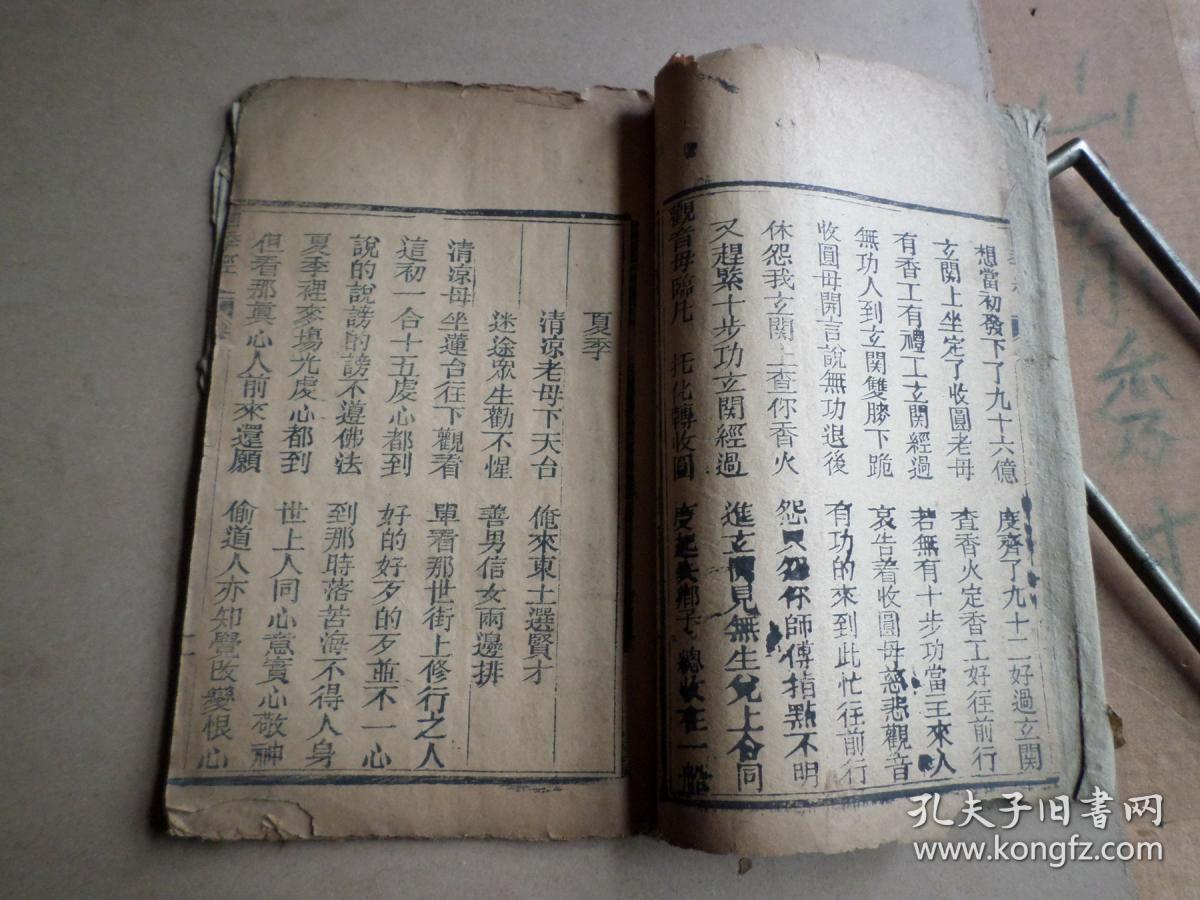 想當初發下了九十六億　度齊了九十二好過玄関
玄関上坐定了收圓老母　查香火定香工好往前行
有香工有禮工玄関經過　若無有十步功當主來人
無功人到玄関雙膝下跪　哀告着收圓母慈悲觀音
收圓母開言說無功退後　有功的來到此忙往前行
休怨我玄関上查你香火　怨只怨你師傅指點不明
又趕緊十步功玄関經過　進玄関見無生兌上合同
觀音母臨凡　托化轉收圓　總收在一船
夏季
清凉老母下天台　俺來東土選賢才
迷途眾生勸不惺　善男信女兩邊排
清凉母坐蓮台往下觀看　單看那世街上修行之人
這初一合十五虔心都到　好的好歹的歹並不一心
說的說謗的謗不遵佛法　到那時落苦海不得人身
夏季裡麥場光虔心都到　世上人同心意實心敬神
但看那真心人前來還願　偷道人亦知覺改變恨心
季經
孔夫子旧书网
www.kongfz.com